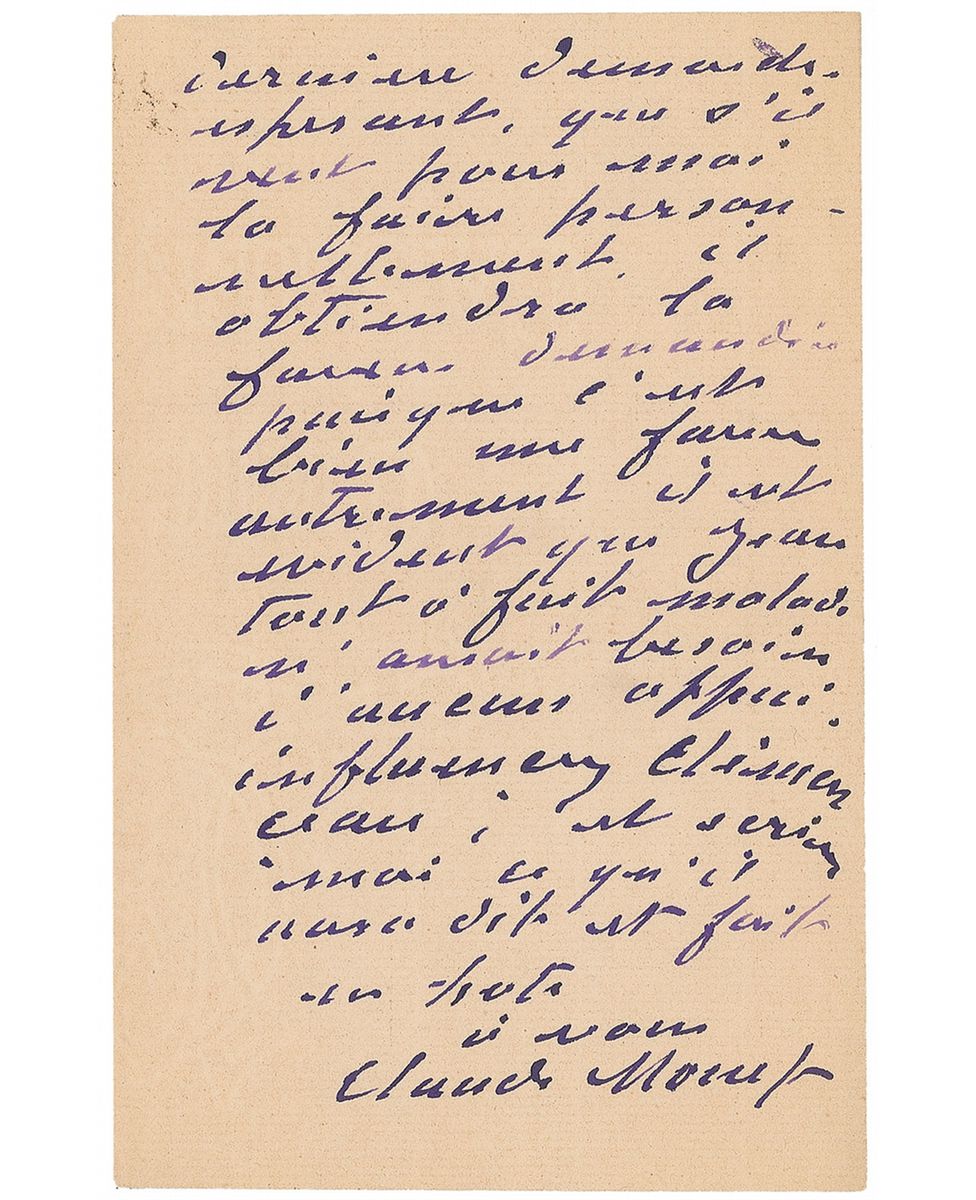 derniere demande.
esperant, que s'il
veut pour moi
la faire person-
nellement, il
obtiendra la
faveur demandée
puisque c'est
bien une faveur
autrement il est
evident que Jean
tout à fait malade
n'aurait besoin
d'aucun appui.
influencez Clémen
ceau, et ecrivez
moi ce qu'il
aura dit et fait
en hate
à vous
Claude Monet